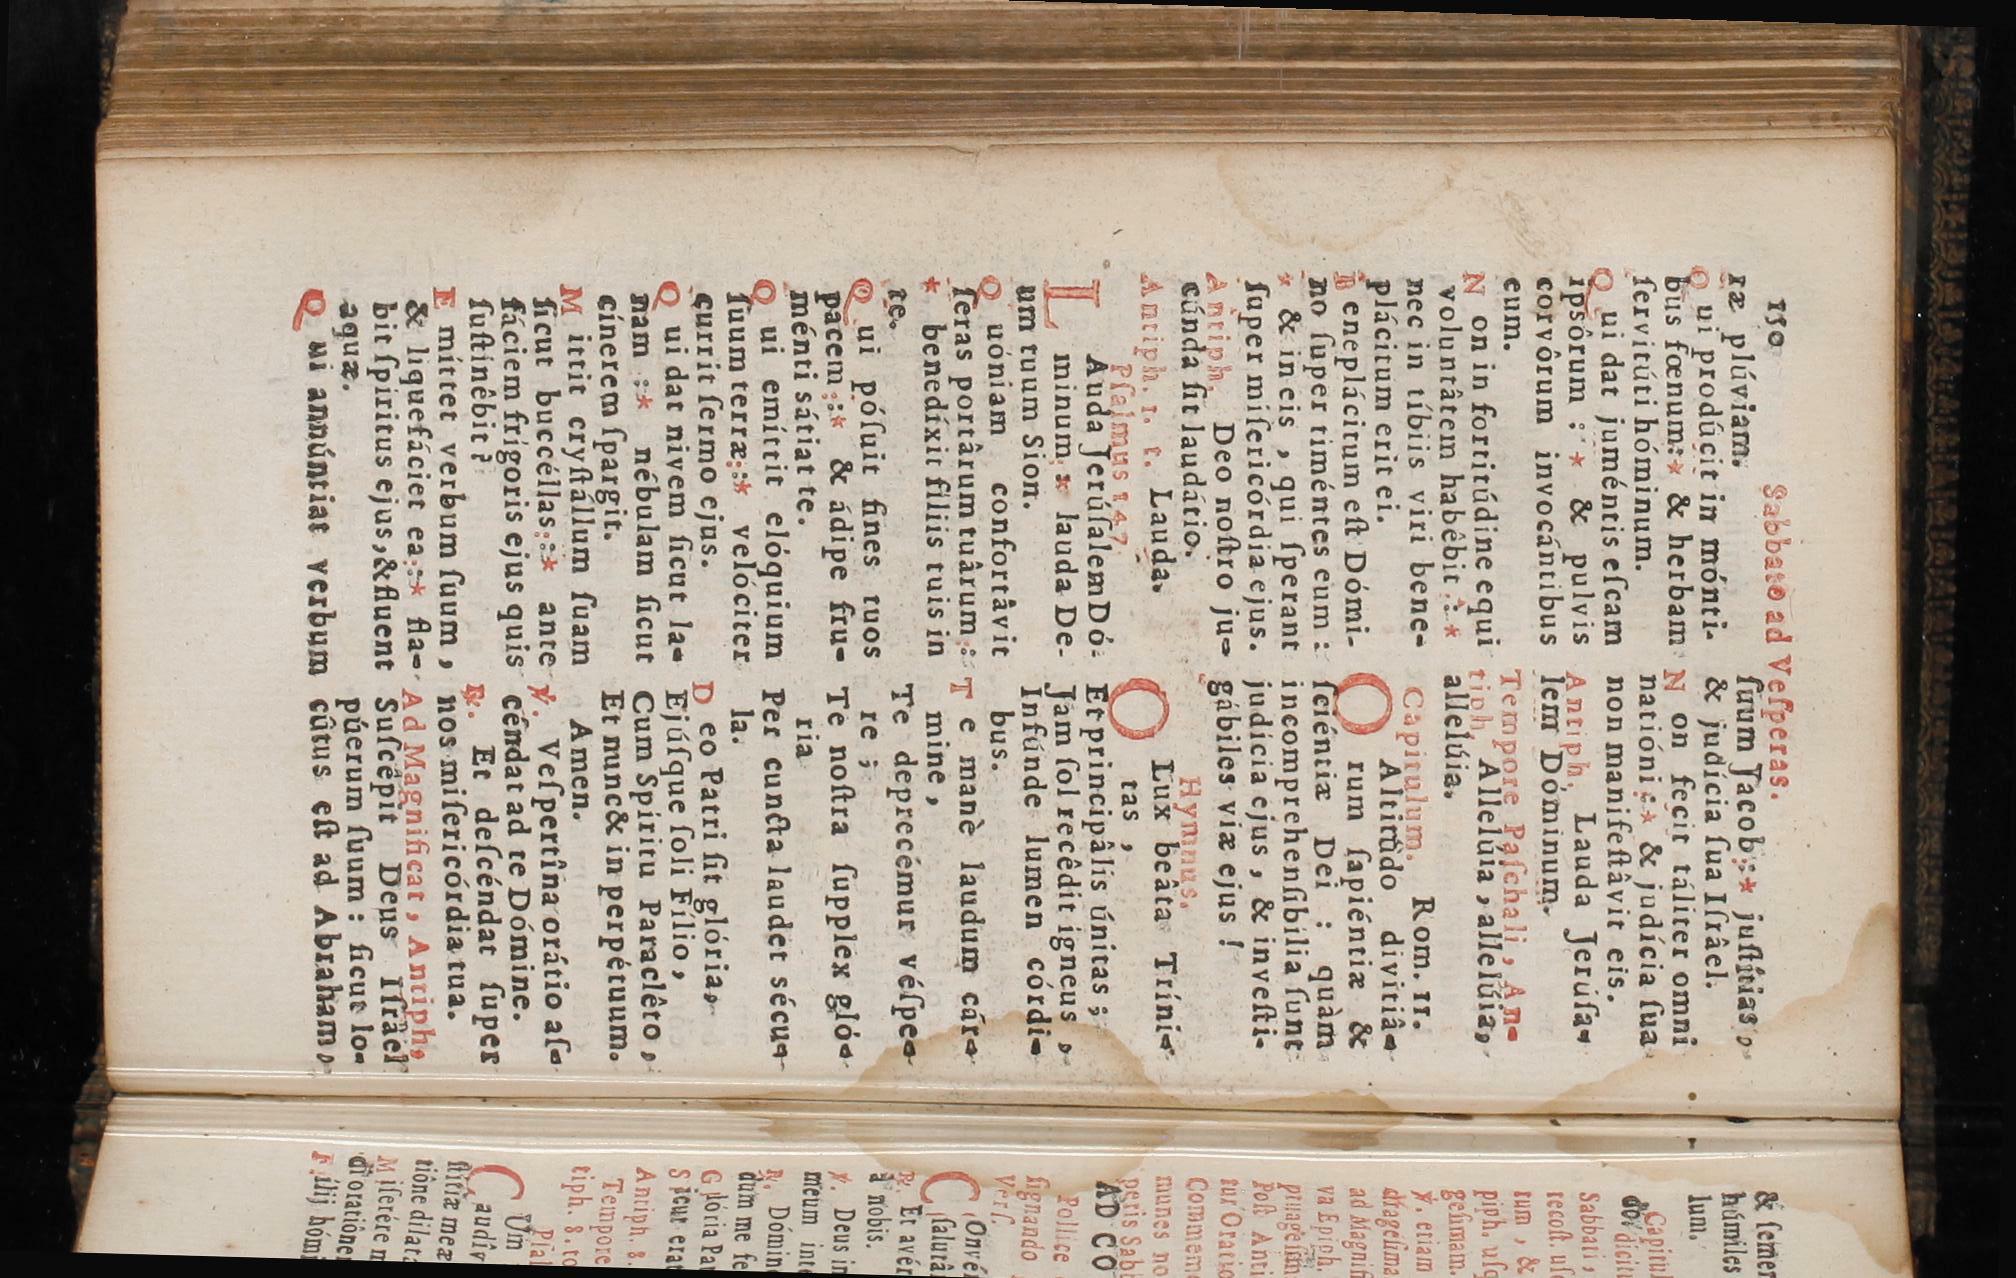 150 Sabbato ad Vesperas.
ræ plúviam.
Qui prodúcit in mónti-
bus fœnum : * & herbam
ſervitúti hóminum.
Qui dat juméntis eſcam
ipsôrum : * & pulvis
corvôrum invocántibus
eum.
Non in fortitúdine equi
voluntâtem habêbit : *
nec in tíbiis viri bene-
plácitum erit ei.
Beneplácitum eſt Dómi-
no ſuper timéntes eum :
* & in eis , qui ſperant
ſuper miſericórdia ejus.
Antiph. Deo noſtro ju-
cúnda ſit laudátio.
Antiph. 1. f. Lauda.
Pſalmus 147.
LAuda Jerúſalem Dó-
minum : * lauda De-
um tuum Sion.
Quóniam confortâvit
ſeras portârum tuârum :
* benedíxit filiis tuis in
te.
Qui póſuit fines tuos
pacem : * & ádipe fru-
ménti sátiat te.
Qui emíttit elóquium
ſuum terræ : * velóciter
currit ſermo ejus.
Qui dat nivem ſicut la-
nam : * nébulam ſicut
cínerem ſpargit.
Mittit cryſtállum ſuam
ſicut buccéllas : * ante
fáciem frígoris ejus quis
ſuſtinêbit ?
Emíttet verbum ſuum ,
& liquefáciet ea : * fla-
bit ſpiritus ejus,& fluent
aquæ.
Qui annúntiat verbum
ſuum Jacob : * juſtítias ,
& judícia ſua Iſrâel.
Non fecit táliter omni
natióni : * & judícia ſua
non manifeſtâvit eis.
Antiph. Lauda Jerúſa-
lem Dóminum.
Tempore Paſchali , An-
tiph. Allelúia , allelúia,
allelúia.
Capitulum. Rom. 11.
O Altitûdo divitiâ-
rum ſapiéntiæ &
ſciéntiæ Dei : quàm
incomprehenſibília ſunt
judícia ejus , & inveſti-
gábiles viæ ejus !
Hymnus.
O Lux beâta Tríni-
tas ,
Et principâlis únitas ;
Jam ſol recêdit igneus ,
Infúnde lumen córdi-
bus.
Te manè laudum cár-
mine ,
Te deprecémur véſpe-
re ;
Te noſtra ſupplex gló-
ria
Per cuncta laudet sécu-
la.
Deo Patri ſit glória,
Ejúſque ſoli Fílio ,
Cum Spiritu Paraclêto ,
Et nunc& in perpétuum.
Amen.
℣. Veſpertîna orátio aſ-
céndat ad te Dómine.
℟. Et deſcéndat ſuper
nos miſericórdia tua.
Ad Magnificat , Antiph,
Suſcêpit Deus Iſrâel
púerum ſuum : ſicut lo-
cûtus eſt ad Abraham ,
& ſemen
húmiles
lum.
Sabbati ,
rum , &
piph. uſq
geſiman.
℣. etiam
ad Magnif
va Epiph.
Poſt Anti
Commem
munes no
peris Sabb
AD CO
Pollice
ſignando
Verſ.
Onvé
ſalutâ
℟. Et avér
à nobis.
℣. Deus in
meum inte
℟. Dómin
dum me fe
Glória Pa
Sicut erat
Antiph. 8.
Tempore
tiph. 8. to
Pſal
CUm
audív
ſtítiæ meæ
tiône dilat
Miſerére m
orationem
Fílij hómi